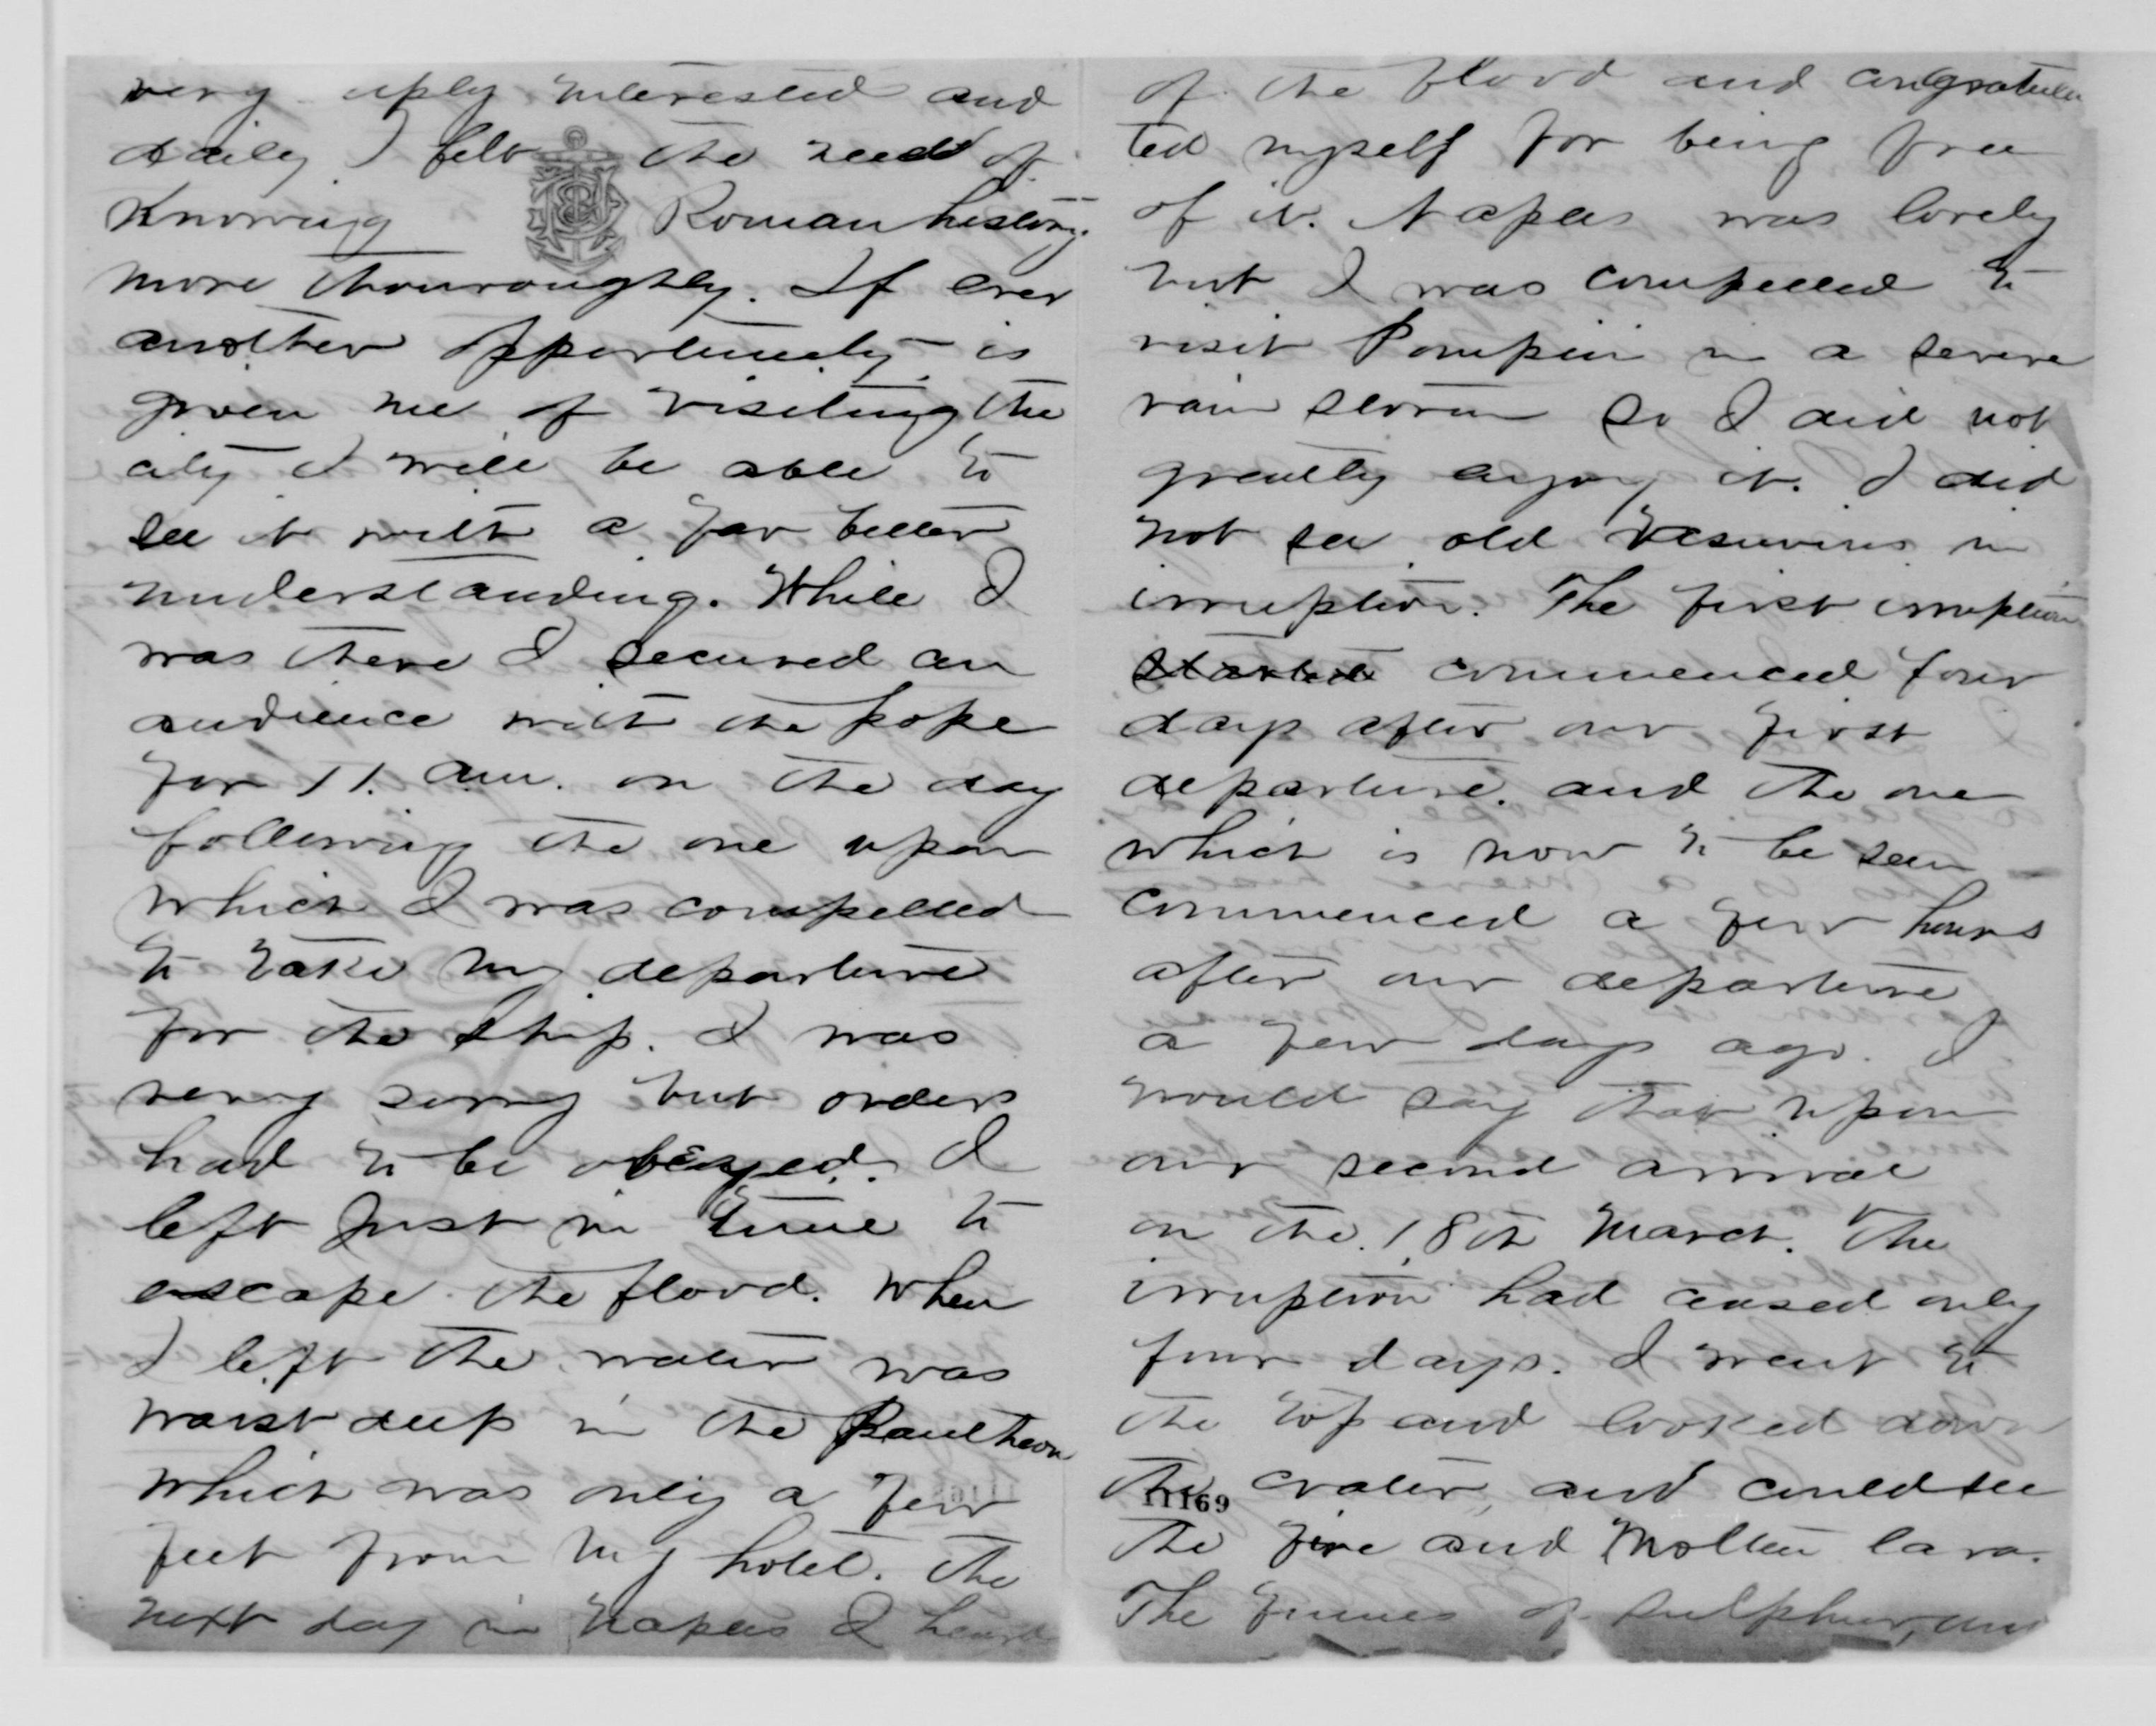 very deeply interested and
daily I felt the need of
knowing Roman history
more thourroughly. If ever
another opportunity is
given me of visiting the
city I will be able to
see it with a far better
understanding. While I
was there I secured an
audience with the pope
for 11. am. on the day
following the one upon
which I was compelled
to take my departure
for the ship. I was
very sorry but orders
had to be obeyed. I
left just in time to
escape the flood. When
I left the water was
waist deep in the Pantheon
which was only a few
feet from my hotel. The
next day in Naples I heard
of the flood and congratula
ted myself for being free
of it. Naples was lovely
but I was compelled to
visit Pompeii in a severe
rain storm so I did not
greatly enjoy it. I did
not see old Vesuvius in
irruption. The first irruption
started commenced four
days after our first
departure. and the one
which is now to be seen
commenced a few hours
after our departure
a few days ago. I
would say that upon
our second arrival
on the 18th March. The
irruption had ceased only
four days. I went to
the top and looked down
the crater, and could see
11169
the fire and molten lava.
The fumes of sulphur, and